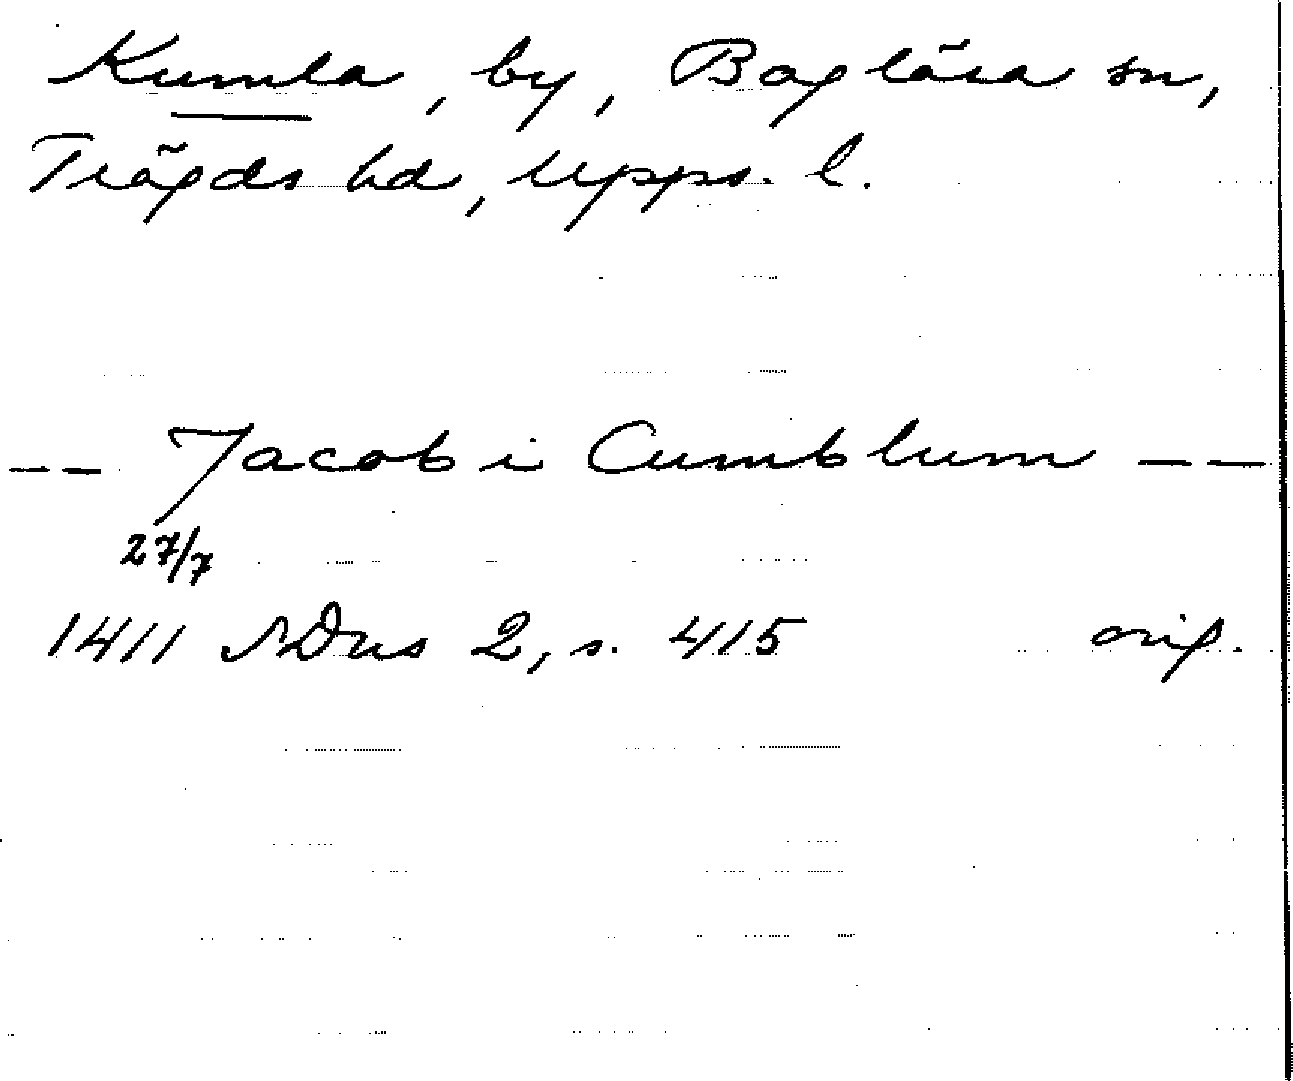 Kumla, by, Boglösa sn,
Trögds hd, Upps. l.
-- Jacob i Cumblum --
27/7
1411 SDns 2, s. 415 orig.